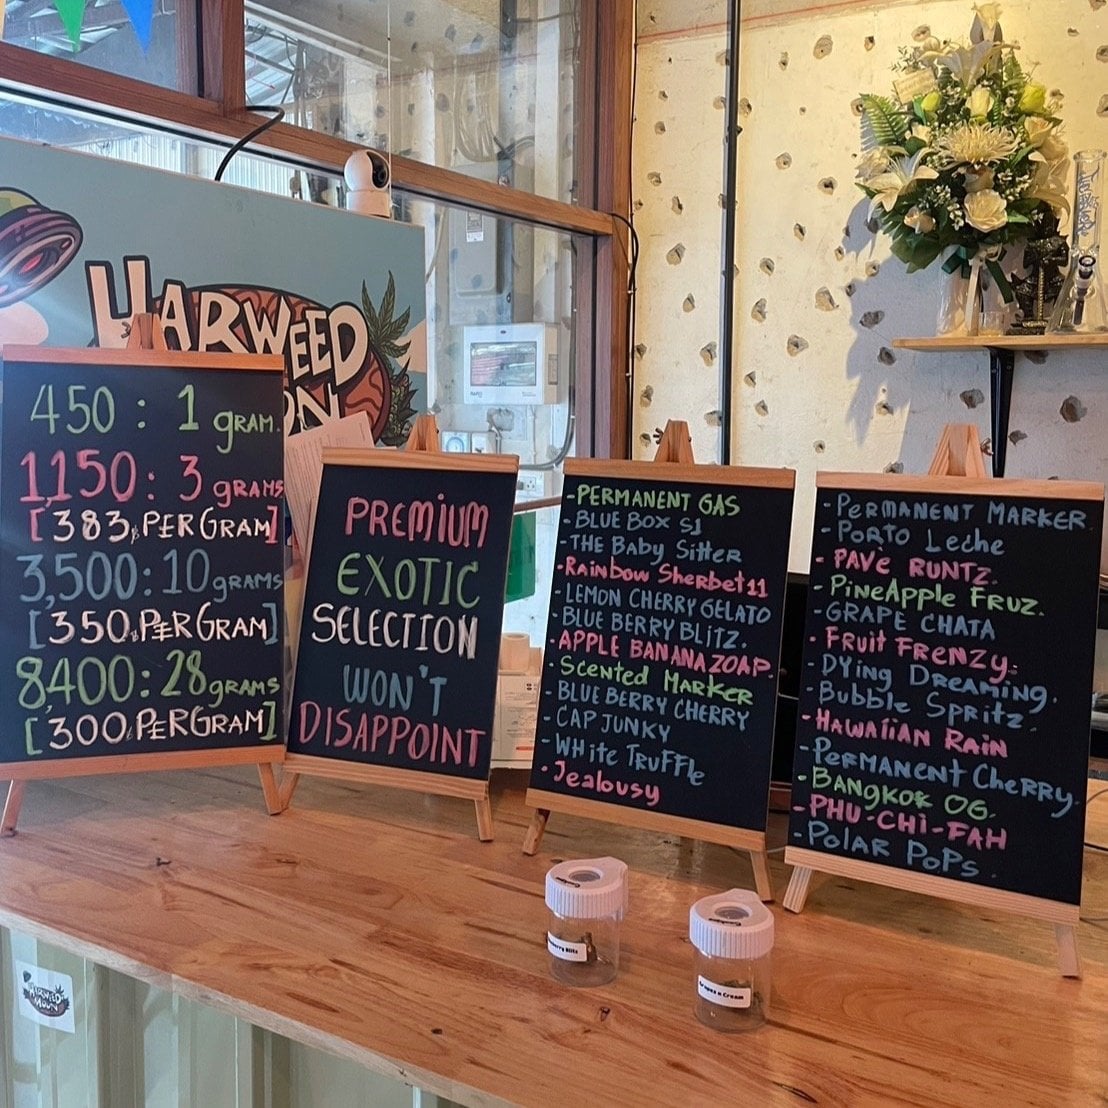 HARWEED
450 : 1 GRAM.
1,150 : 3 GRAMS
[383฿ PER GRAM]
3,500 : 10 GRAMS
[350฿ PER GRAM]
8,400 : 28 GRAMS
[300฿ PER GRAM]
PREMIUM
EXOTIC
SELECTION
WON'T
DISAPPOINT
- PERMANENT GAS
- BLUE BOX S1
- THE BABY SITTER
- RAINBOW SHERBET 11
- LEMON CHERRY GELATO
- BLUE BERRY BLITZ.
- APPLE BANANA ZOAP.
- SCENTED MARKER
- BLUE BERRY CHERRY
- CAP JUNKY
- WHITE TRUFFLE
- Jealousy
- PERMANENT MARKER.
- PORTO LECHE
- PAVÉ RUNTZ.
- PINEAPPLE FRUZ.
- GRAPE CHATA
- FRUIT FRENZY.
- DYING DREAMING.
- BUBBLE SPRITZ.
- HAWAIIAN RAIN
- PERMANENT CHERRY.
- BANGKOK OG.
- PHU-CHI-FAH
- POLAR POPS.
Grapes n Cream
HARWEED
MOON